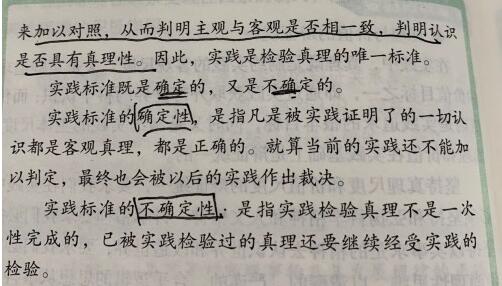 来加以对照，从而判明主观与客观是否相一致，判明认识
是否具有真理性。因此，实践是检验真理的唯一标准。
实践标准既是确定的，又是不确定的。
实践标准的确定性，是指凡是被实践证明了的一切认
识都是客观真理，都是正确的。就算当前的实践还不能加
以判定，最终也会被以后的实践作出裁决。
实践标准的不确定性，是指实践检验真理不是一次
性完成的，已被实践检验过的真理还要继续经受实践的
检验。